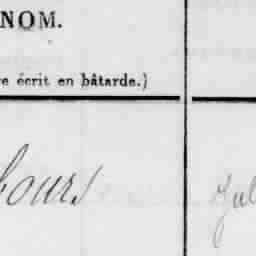 NOM.
re écrit en bâtarde.)
bours Jul